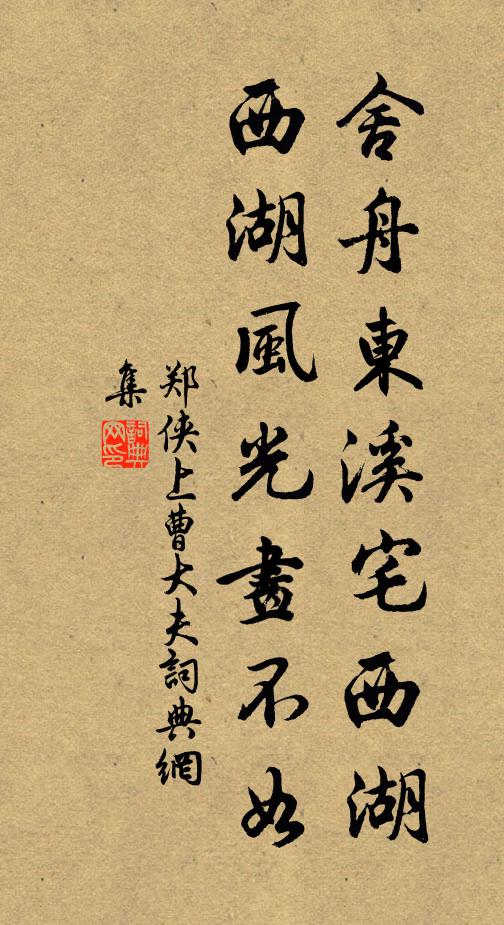 舍舟東溪宅西湖
西湖風光畫不如
郑侠上曹大夫詞典網
集
詞典网印